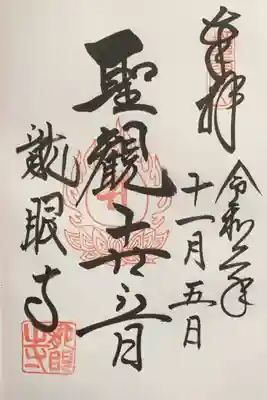 奉拝
令和二年
十一月五日
聖観世音
龍眼寺